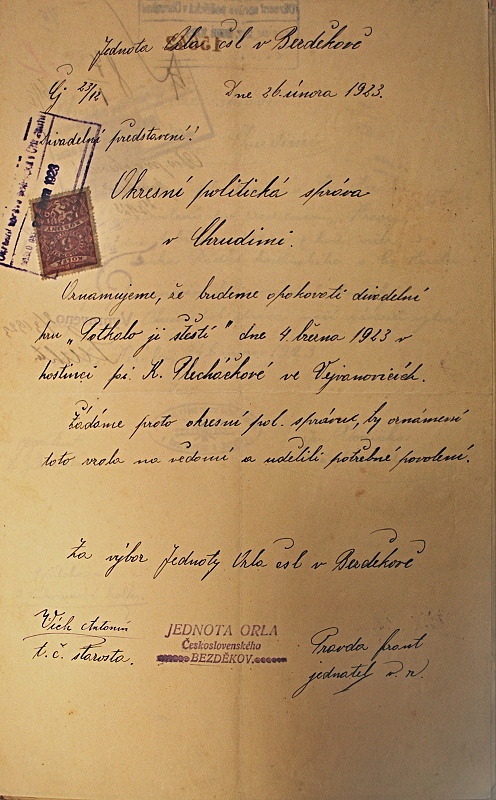 Jednota Orla čsl v Bezděkově
Čj 23/12 Dne 26. února 1923.
Divadelní představení!
Okresní politická správa
v Chrudimi.
Oznamujeme, že budeme opakovati divadelní
hru „Potkalo ji štěstí" dne 4. března 1923 v
hostinci pí. K. Plecháčkové ve Vejvanovicích.
Žádáme proto okresní pol. správu, by oznámení
toto vzala na vědomí a udělila potřebné povolení.
Za výbor Jednoty Orla čsl v Bezděkově
Vích Antonín
t. č. starosta.
JEDNOTA ORLA
Československého
BEZDĚKOV.
Pravda frant
jednatel v. r.